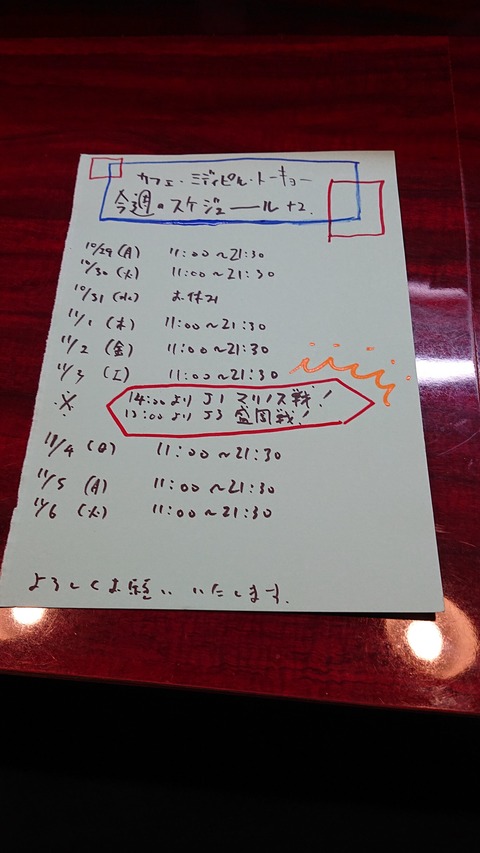 カフェ・ミディピル・トーキョー
今週のスケジュール+2.
10/29(月) 11:00〜21:30
10/30(火) 11:00〜21:30
10/31(水) お休み
11/1(木) 11:00〜21:30
11/2(金) 11:00〜21:30
11/3(土) 11:00〜21:30
※ 14:00より J1 マリノス戦!
13:00より J3 盛岡戦!
11/4(日) 11:00〜21:30
11/5(月) 11:00〜21:30
11/6(火) 11:00〜21:30
よろしくお願いいたします.